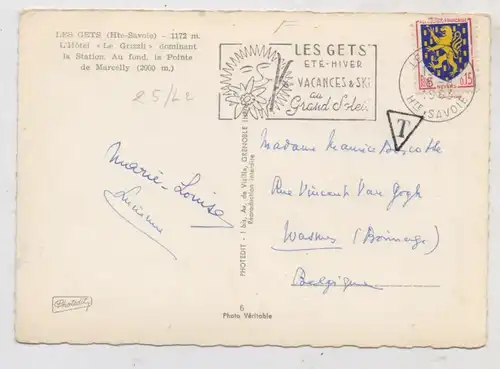 LES GETS (Hte-Savoie) - 1172 m.
L'Hôtel « Le Grizzli » dominant
la Station. Au fond, la Pointe
de Marcelly (2000 m.)
LES GETS
ETE-HIVER
VACANCES & SKI
au
Grand Soleil
0,15
NEVERS
Hte SAVOIE
T
25/22
Marie-Louise
Lucienne
Madame Maurice
Rue Vincent Van Gogh
Wasmes (Borinage)
Belgique
PHOTEDIT - 1 bis, Av. de Vizille, GRENOBLE
Reproduction interdite
Photedit
6
Photo Véritable